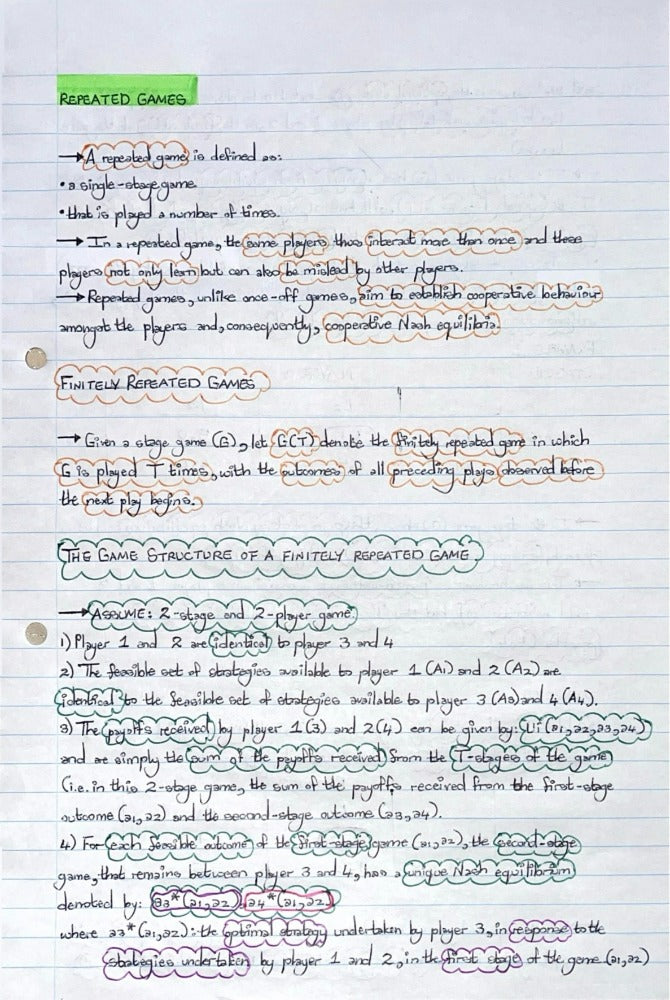 REPEATED GAMES
→ A repeated game is defined as:
• a single-stage game
• that is played a number of times.
→ In a repeated game, the same players thus interact more than once and these
players not only learn but can also be mislead by other players.
→ Repeated games, unlike once-off games, aim to establish cooperative behaviour
amongst the players and, consequently, cooperative Nash equilibria.
FINITELY REPEATED GAMES
→ Given a stage game (G), let G(T) denote the finitely repeated game in which
G is played T times, with the outcomes of all preceding plays observed before
the next play begins.
THE GAME STRUCTURE OF A FINITELY REPEATED GAME
→ ASSUME: 2-stage and 2-player game
1) Player 1 and 2 are identical to player 3 and 4
2) The feasible set of strategies available to player 1 (A1) and 2 (A2) are
identical to the feasible set of strategies available to player 3 (A3) and 4 (A4).
3) The payoffs received by player 1(3) and 2(4) can be given by: Ui(a1,a2,a3,a4)
and are simply the sum of the payoffs received from the T-stages of the game
(i.e. in this 2-stage game, the sum of the payoffs received from the first-stage
outcome (a1,a2) and the second-stage outcome (a3,a4).
4) For each feasible outcome of the first-stage game (a1,a2), the second-stage
game, that remains between player 3 and 4, has a unique Nash equilibrium
denoted by: a3*(a1,a2), a4*(a1,a2)
where a3*(a1,a2): the optimal strategy undertaken by player 3, in response to the
strategies undertaken by player 1 and 2, in the first stage of the game (a1,a2)